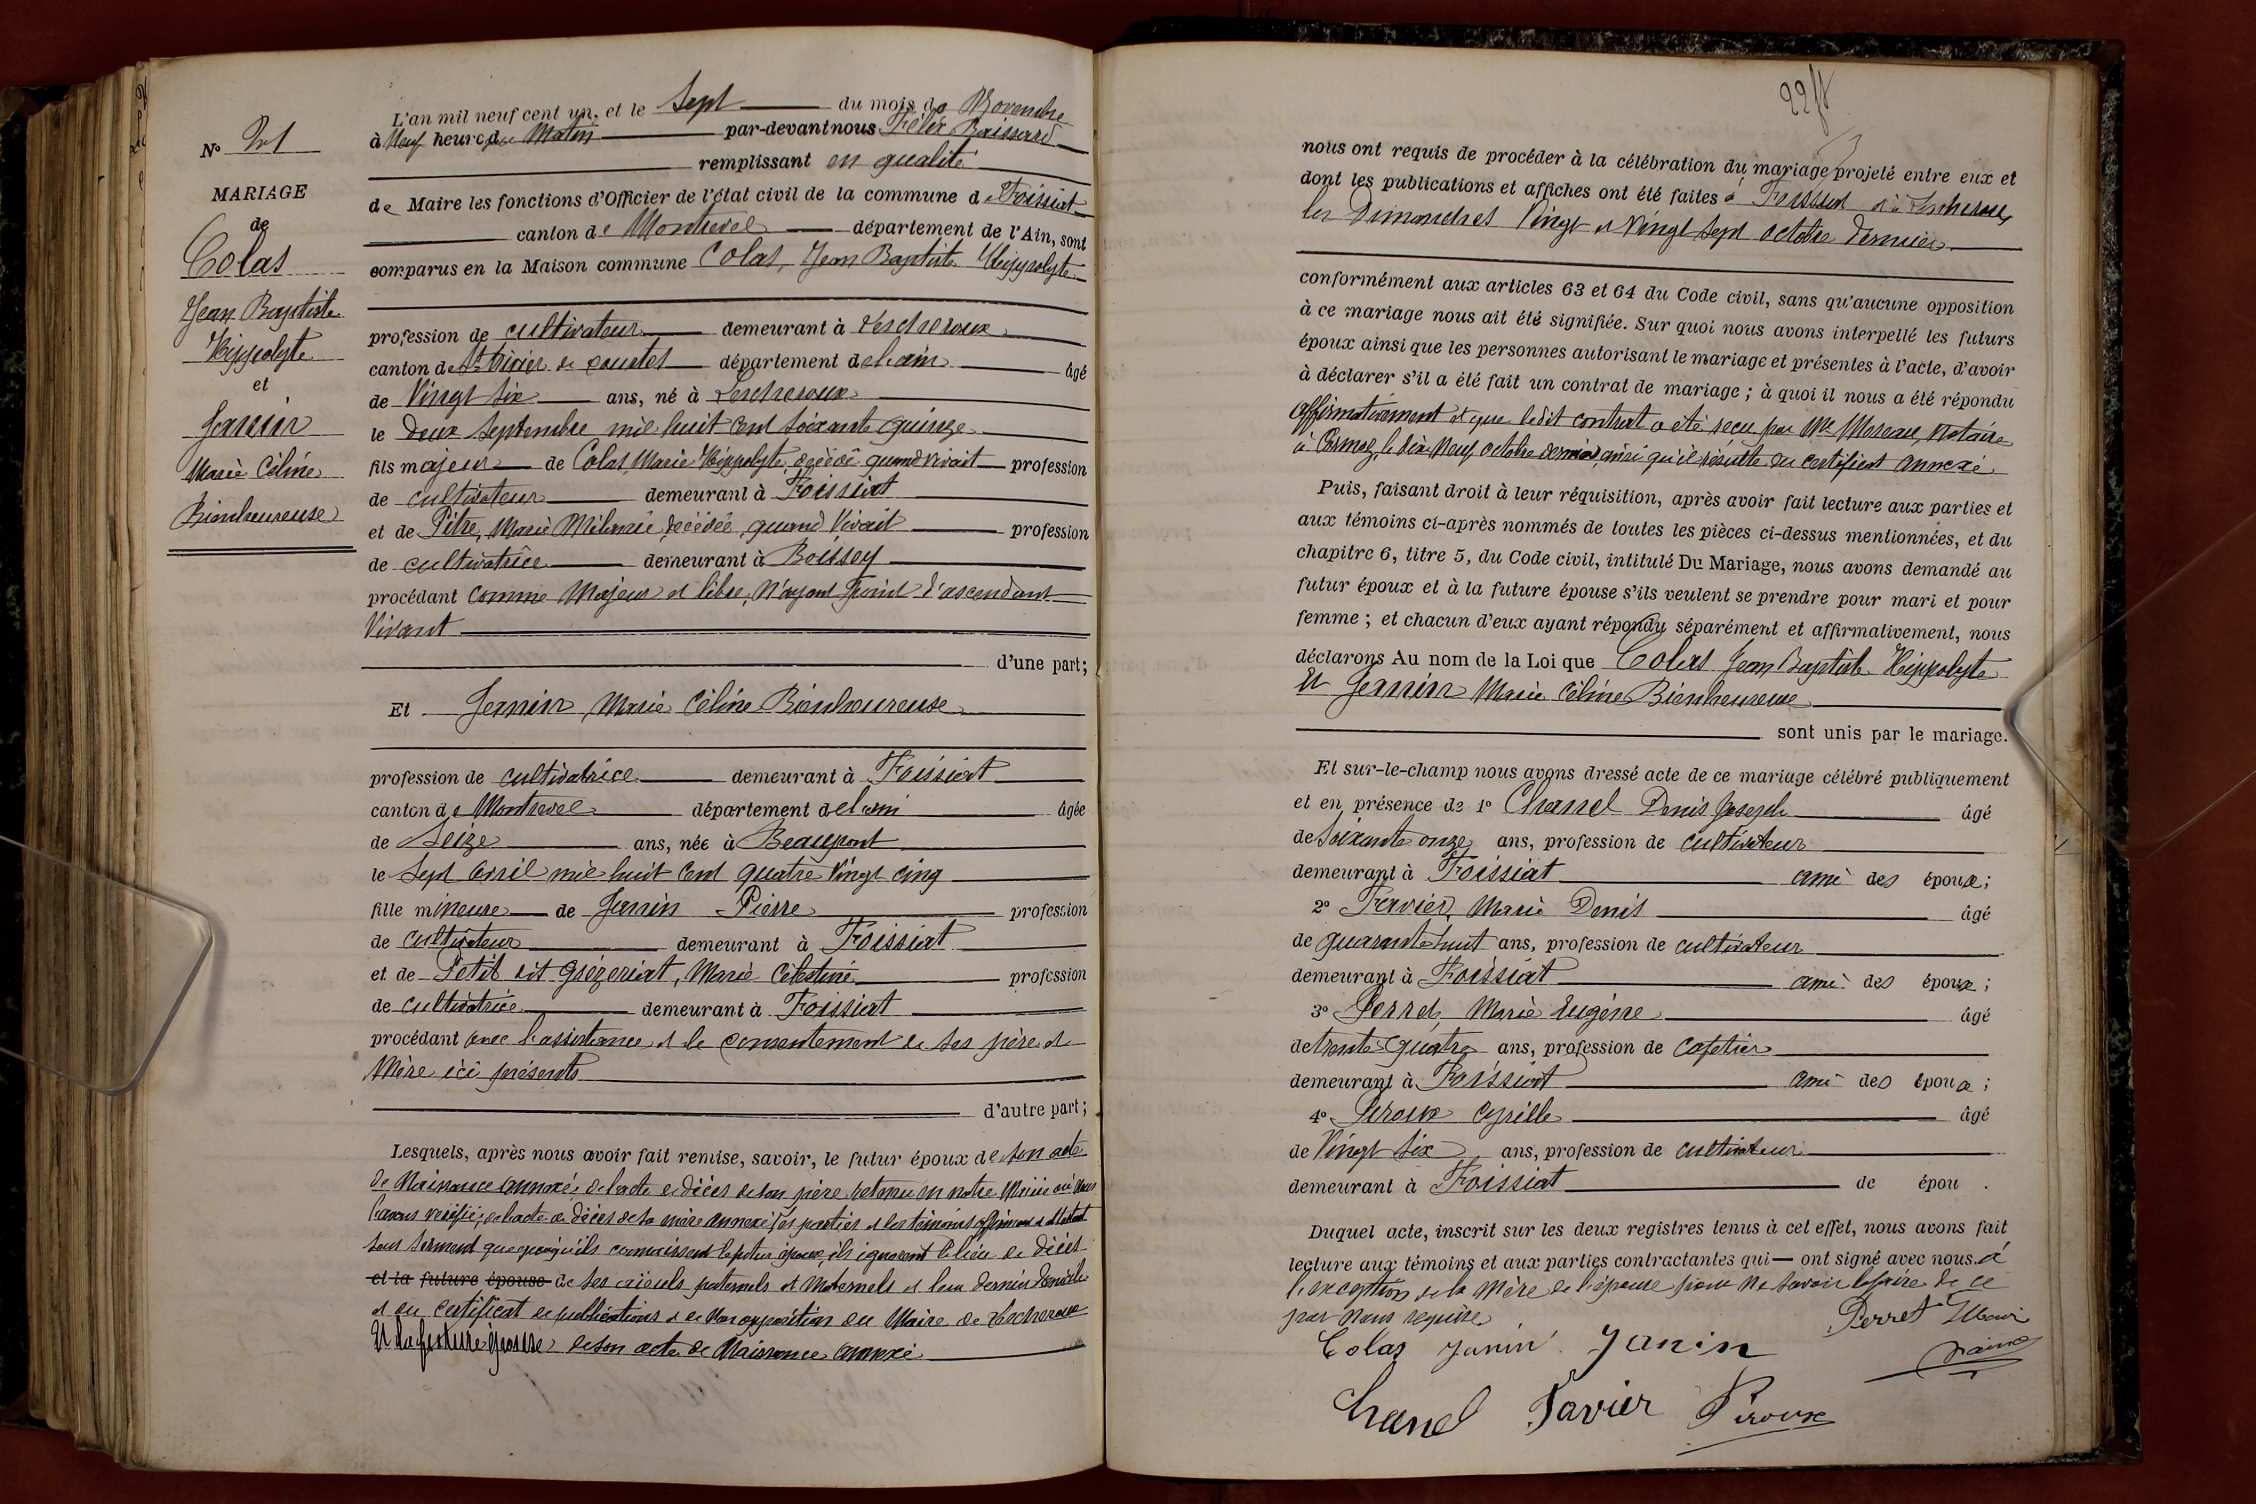 N° 21
MARIAGE
de
Colas
Jean Baptiste
Hippolyte
et
Janin
Marie Céline
Bienheureuse
L'an mil neuf cent un, et le Sept du mois de Novembre
à Neuf heures du Matin par-devant nous Félix
remplissant en qualité
de Maire les fonctions d'Officier de l'état civil de la commune de Foissiat
canton de Montrevel département de l'Ain, sont
comparus en la Maison commune Colas, Jean Baptiste Hippolyte
profession de cultivateur demeurant à Lescheroux
canton de St Trivier de Courtes département de l'ain âgé
de Vingt six ans, né à Lescheroux
le deux Septembre mil huit cent soixante quinze
fils majeur de Colas, Marie Hippolyte, décédé quand vivait profession
de cultivateur demeurant à Foissiat
et de Pitre, Marie Mélanie, décédée, quand Vivait profession
de cultivatrice demeurant à Boissey
procédant comme Majeur et libre, N'ayant point d'ascendant
Vivant
d'une part;
Et Janin, Marie Céline Bienheureuse
profession de cultivatrice demeurant à Foissiat
canton de Montrevel département de l'ain âgée
de Seize ans, née à Beaupont
le Sept avril mil huit cent quatre Vingt cinq
fille mineure de Janin Pierre profession
de cultivateur demeurant à Foissiat
et de Petit dit Grézeriat, Marie Célestine profession
de cultivatrice demeurant à Foissiat
procédant avec l'assistance et le consentement de ses père et
Mère ici présents
d'autre part;
Lesquels, après nous avoir fait remise, savoir, le futur époux de son acte
de Naissance annexé, de l'acte de décès de son père, retenu en notre Mairie où Nous
l'avons vérifié; de l'acte de décès de sa mère annexé, les parties et les témoins affirment et attestant
sous serment que quoiqu'ils connaissent le futur époux, ils ignorent le lieu de décès
et la future épouse de ses aïeuls paternels et Maternels et leur dernier domicile
et du certificat de publications et de Non opposition du Maire de Lescheroux
Et la future épouse de son acte de Naissance annexé
nous ont requis de procéder à la célébration du mariage projeté entre eux et
dont les publications et affiches ont été faites à Foissiat et à Lescheroux
les Dimanches Vingt et Vingt Sept octobre dernier
conformément aux articles 63 et 64 du Code civil, sans qu'aucune opposition
à ce mariage nous ait été signifiée. Sur quoi nous avons interpellé les futurs
époux ainsi que les personnes autorisant le mariage et présentes à l'acte, d'avoir
à déclarer s'il a été fait un contrat de mariage; à quoi il nous a été répondu
affirmativement et que ledit contrat a été reçu par Me Moreau, Notaire
à Cormoz, le dix Neuf octobre dernier, ainsi qu'il résulte du certificat annexé
Puis, faisant droit à leur réquisition, après avoir fait lecture aux parties et
aux témoins ci-après nommés de toutes les pièces ci-dessus mentionnées, et du
chapitre 6, titre 5, du Code civil, intitulé Du Mariage, nous avons demandé au
futur époux et à la future épouse s'ils veulent se prendre pour mari et pour
femme; et chacun d'eux ayant répondu séparément et affirmativement, nous
déclarons Au nom de la Loi que Colas Jean Baptiste Hippolyte
Et Janin Marie Céline Bienheureuse
sont unis par le mariage.
Et sur-le-champ nous avons dressé acte de ce mariage célébré publiquement
et en présence de 1° Chanel Denis Joseph âgé
de soixante onze ans, profession de cultivateur
demeurant à Foissiat ami des époux;
2° Favier, Marie Denis âgé
de quarante huit ans, profession de cultivateur
demeurant à Foissiat ami des époux;
3° Perret, Marie Eugène âgé
de trente-quatre ans, profession de cafetier
demeurant à Foissiat ami des époux;
4° Piroux Cyrille âgé
de Vingt six ans, profession de cultivateur
demeurant à Foissiat de épou .
Duquel acte, inscrit sur les deux registres tenus à cet effet, nous avons fait
lecture aux témoins et aux parties contractantes qui ont signé avec nous à
l'exception de la Mère de l'épouse pour Ne savoir le faire de ce
par Nous requise
Colas Janin Janin Perret
Chanel Favier Piroux